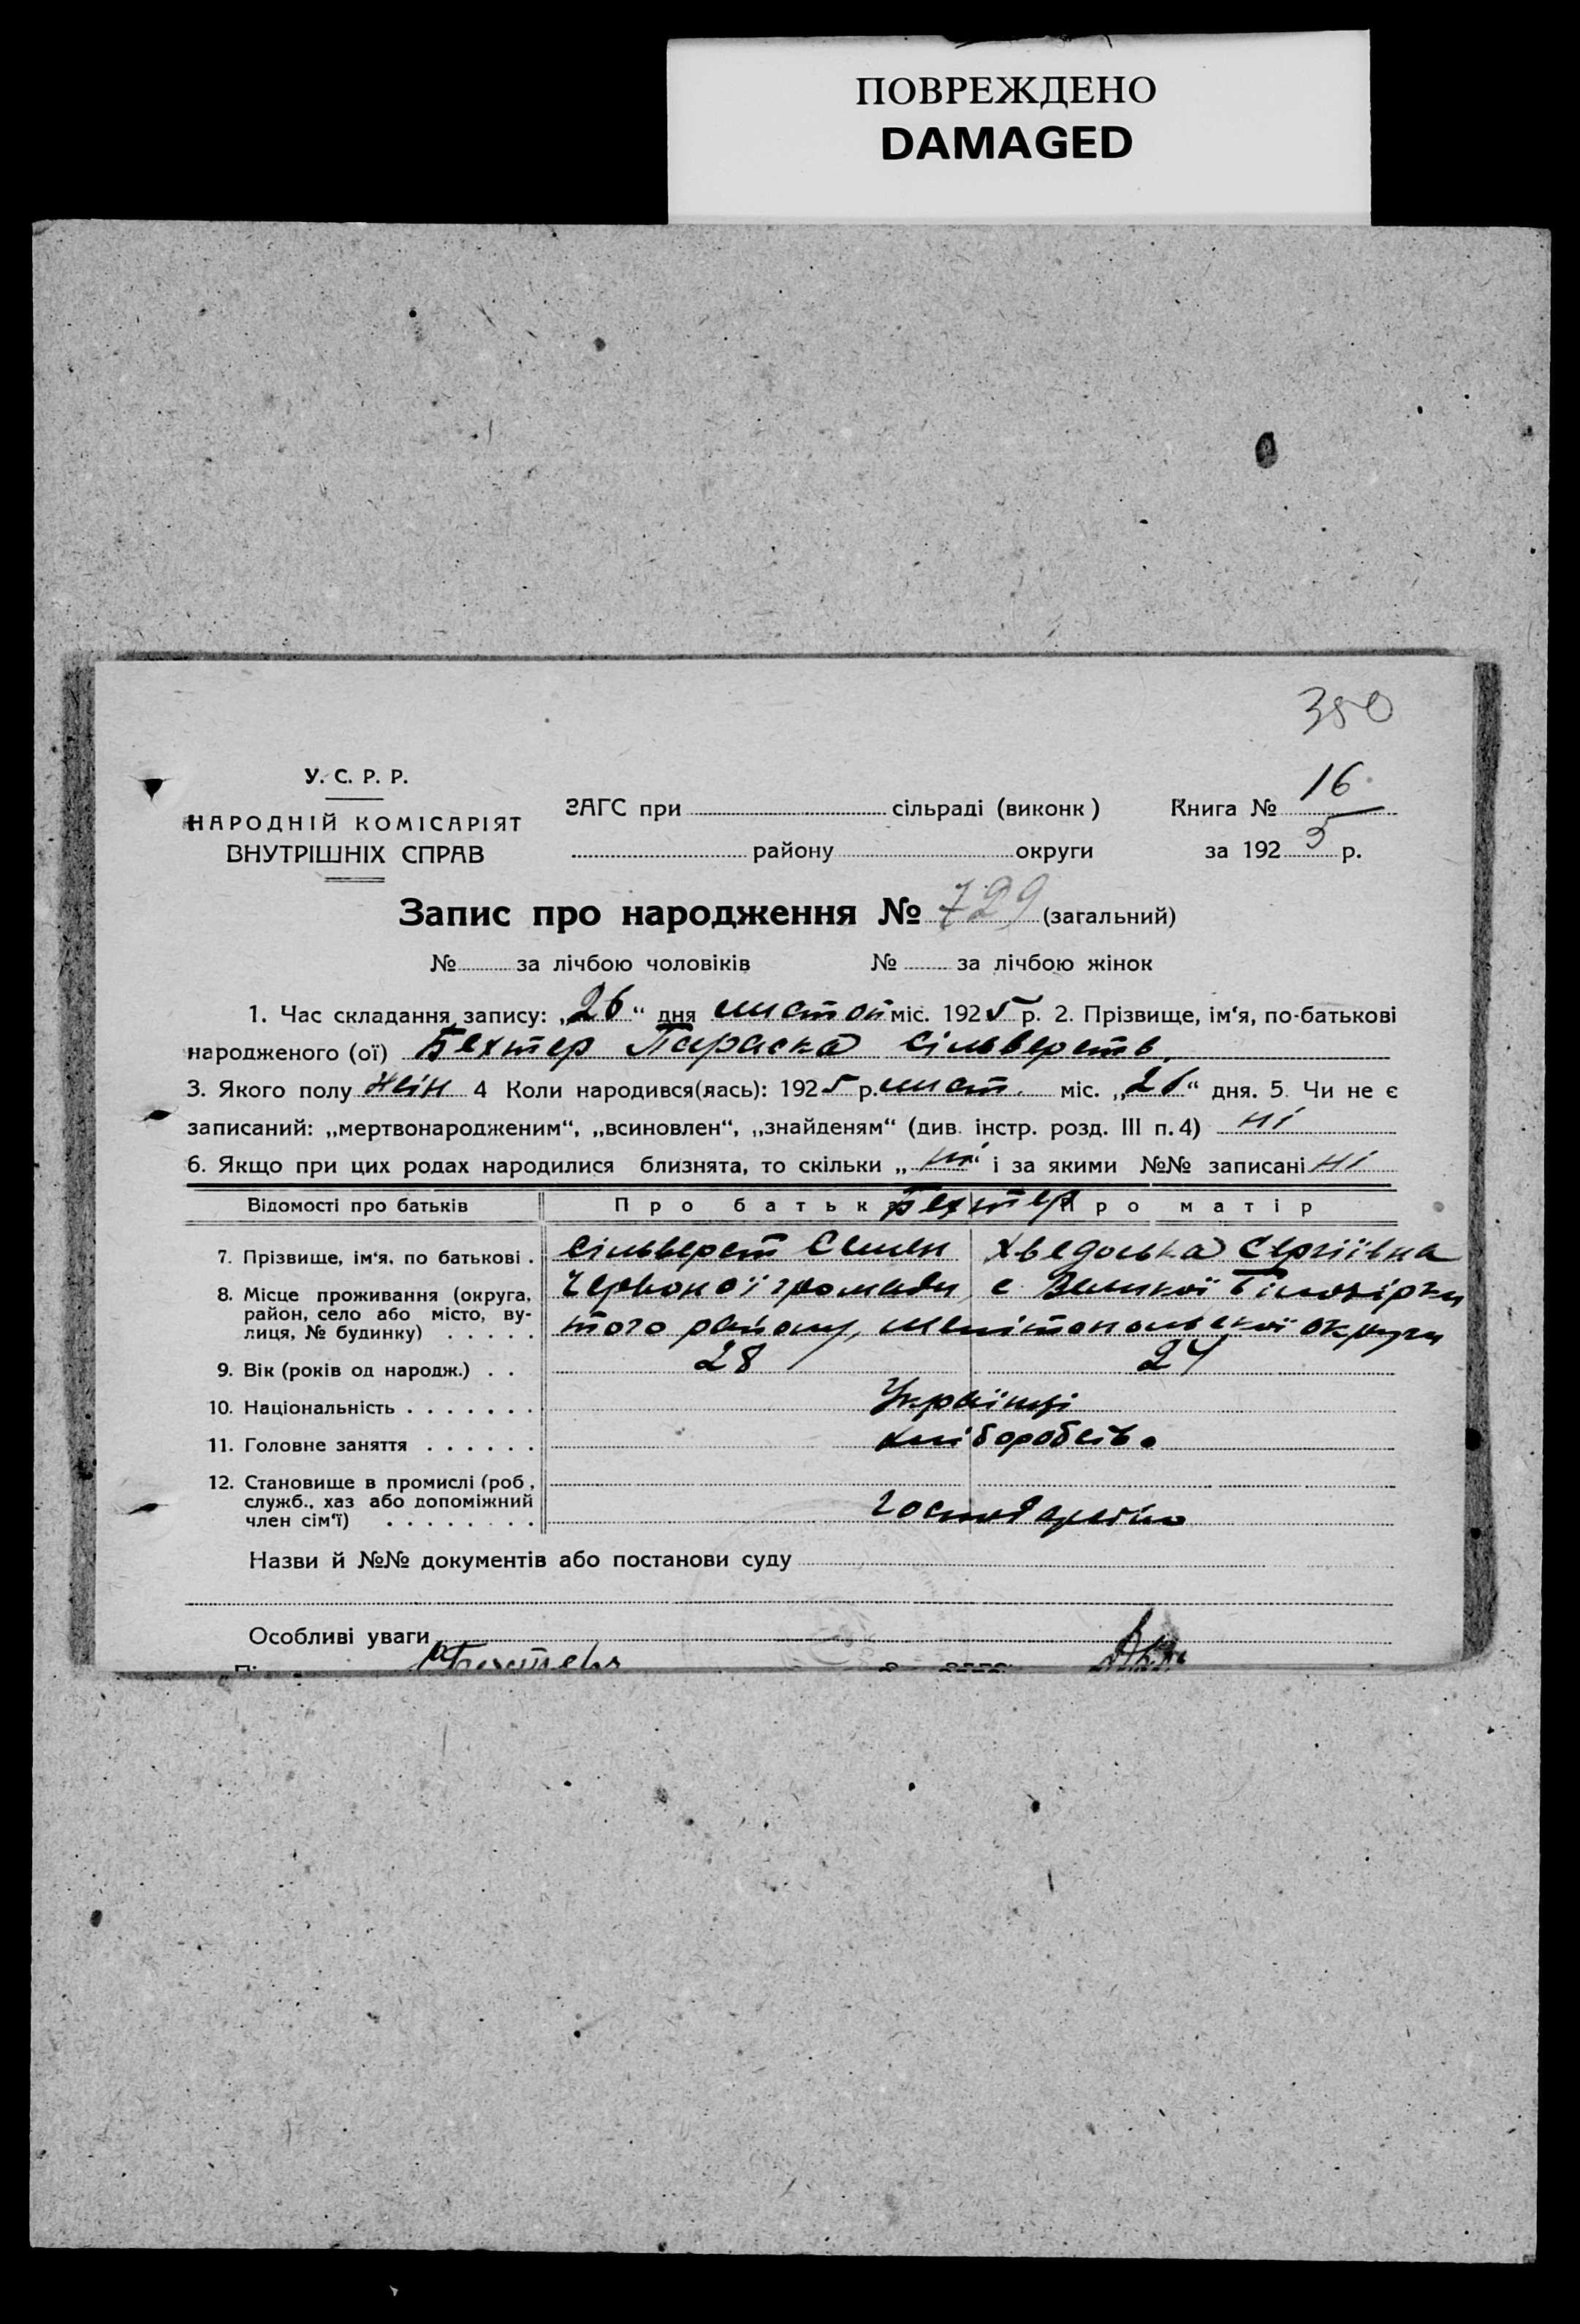 ПОВРЕЖДЕНО
DAMAGED
350
У. С. Р. Р.
НАРОДНІЙ КОМІСАРІЯТ
ВНУТРІШНІХ СПРАВ
ЗАГС при сільраді (виконк)
району округи
Книга № 16
за 1925 р.
Запис про народження № 729 (загальний)
№ за лічбою чоловіків № за лічбою жінок
1. Час складання запису: „26“ дня листоп міс. 1925 р. 2. Прізвище, ім‘я, по-батькові
народженого (ої) Бехтер Параска Сільверств.
3. Якого полу жін 4 Коли народився(лась): 1925 р. лист. міс. „26“ дня. 5. Чи не є
записаний: „мертвонародженим“, „всиновлен“, „знайденям“ (див. інстр. розд. III п. 4) ні
6. Якщо при цих родах народилися близнята, то скільки „ні“ і за якими №№ записані ні
Відомості про батьків Про батьк Бехтер Про матір
7. Прізвище, ім‘я, по батькові . Сільверст Семен Хведоська Сергіївна
8. Місце проживання (округа, Червоної громади, с Великої Білозірки
район, село або місто, ву-
лиця, № будинку) . . . . . того району, Мелітопольської округи
9. Вік (років од народж.) . . 28 24
10. Національність . . . . . . . Українці
11. Головне заняття . . . . . . хліборобств.
12. Становище в промислі (роб,
служб., хаз або допоміжний
член сім‘ї) . . . . . . . .
Назви й №№ документів або постанови суду
Особливі уваги